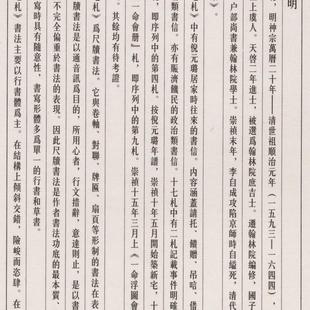 明
，明神宗萬曆二十年——清世祖順治元年（一五九三—一六四四），
上虞人。天啓二年進士，被選爲翰林院庶吉士。遷翰林院編修，國子
户部尚書兼翰林院學士。崇禎末年，李自成攻陷京師時自縊死，清代
》。
札》中有倪元璐居家時往來的書信。内容涵蓋請托、饋贈、吊唁、借
類書信。亦有賑濟饑民的政治類書信。十七札中有二札記載事件明確
，即序列中的第四札。按倪元璐年譜，崇禎十年五月開始築新宅，十
一命會册》札，即序列中的第九札。崇禎十五年三月上《一命浮圖會
其餘均有待考證。
札》爲尺牘書法。它與卷軸、對聯、牌匾、扇頁等形制的書法在表
牘是以通音訊爲目的，所用心者，行文措辭，意達則止，是以書
不完全偏重於書法的表現。因此尺牘書法是作者書法功底的最本質、
時具有隨意性，書寫形體多爲單一的行書和草書。
札》書法主要以行書體爲主。在結構上傾斜交錯，險峻而恣肆。在